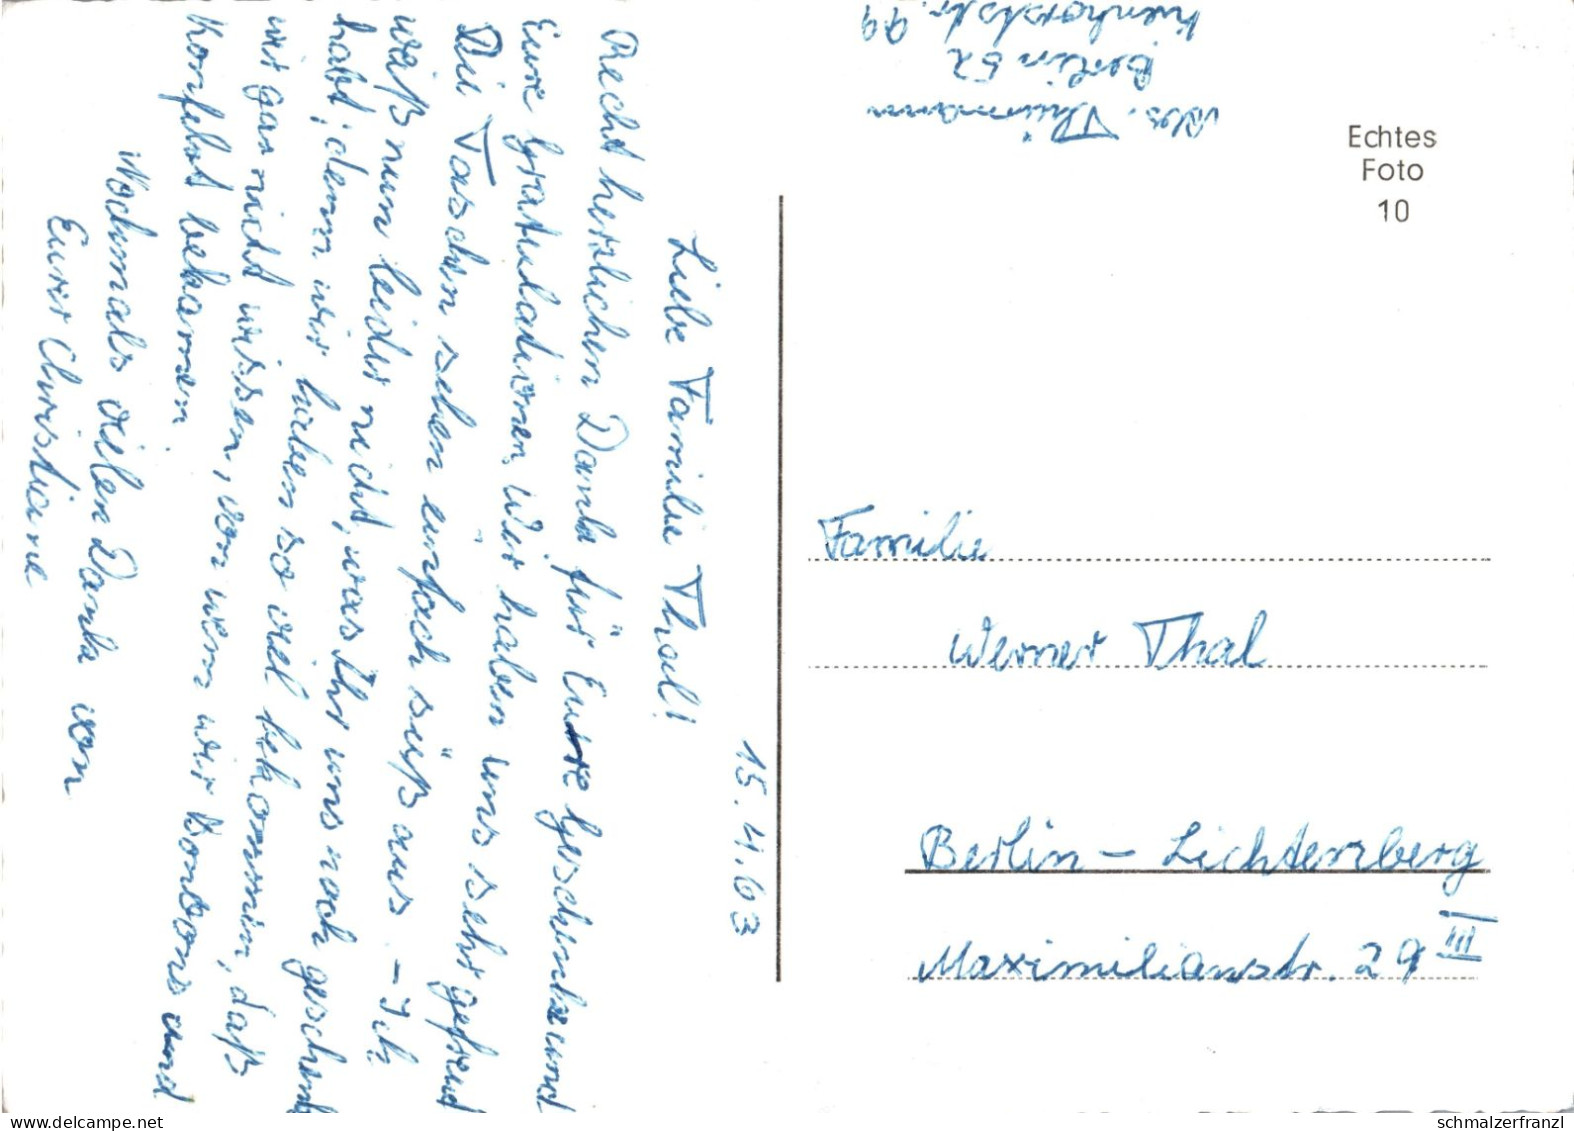 15.4.63
Liebe Familie Thal!
Recht herzlichen Dank für Eure Geschenke und
Eure Gratulationen. Wir haben uns sehr gefreut
Die Taschen sehen einfach süß aus. – Ich
weiß nun leider nicht, was Ihr uns noch geschenkt
habt, denn wir haben so viel bekommen, daß
wir gar nicht wissen, von wem wir Bonbons und
Konfekt bekamen.
Nochmals vielen Dank von
Eurer Christiane
Abs. Thürmann
Berlin 52
Kienhorststr. 99
Echtes
Foto
10
Familie
Werner Thal
Berlin – Lichtenberg
Maximilianstr. 29 III
www.delcampe.net
schmalzerfranzl